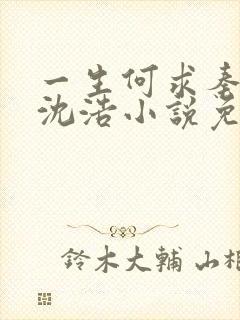 一生何求秦
沈浩小説免
鈴木大輔 山相